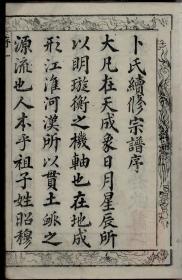 卜氏續修宗譜序
大凡在天成象日月星辰所
以明璇衡之機軸也在地成
形江淮河漢所以貫土脉之
源流也人本乎祖子姓昭穆